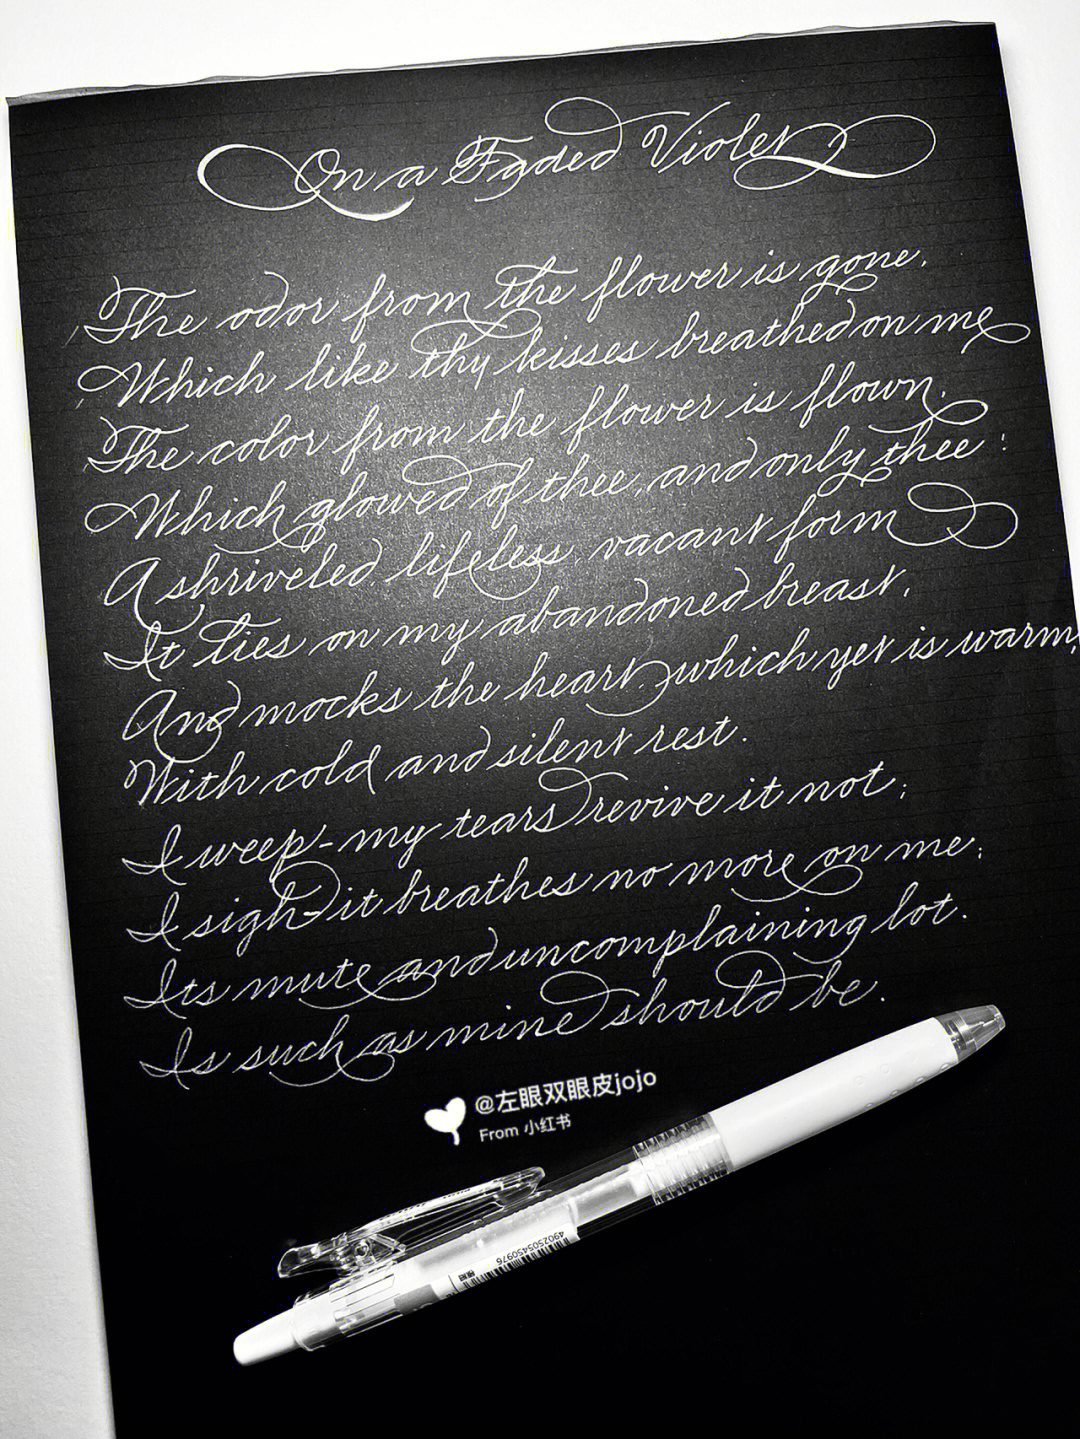 On a Faded Violet
The odor from the flower is gone,
Which like thy kisses breathed on me
The color from the flower is flown,
Which glowed of thee, and only thee!
A shriveled, lifeless, vacant form
It lies on my abandoned breast,
And mocks the heart, which yet is warm,
With cold and silent rest.
I weep-my tears revive it not;
I sigh-it breathes no more on me;
Its mute and uncomplaining lot.
Is such as mine should be.
@左眼双眼皮jojo
From 小红书
4902505450976